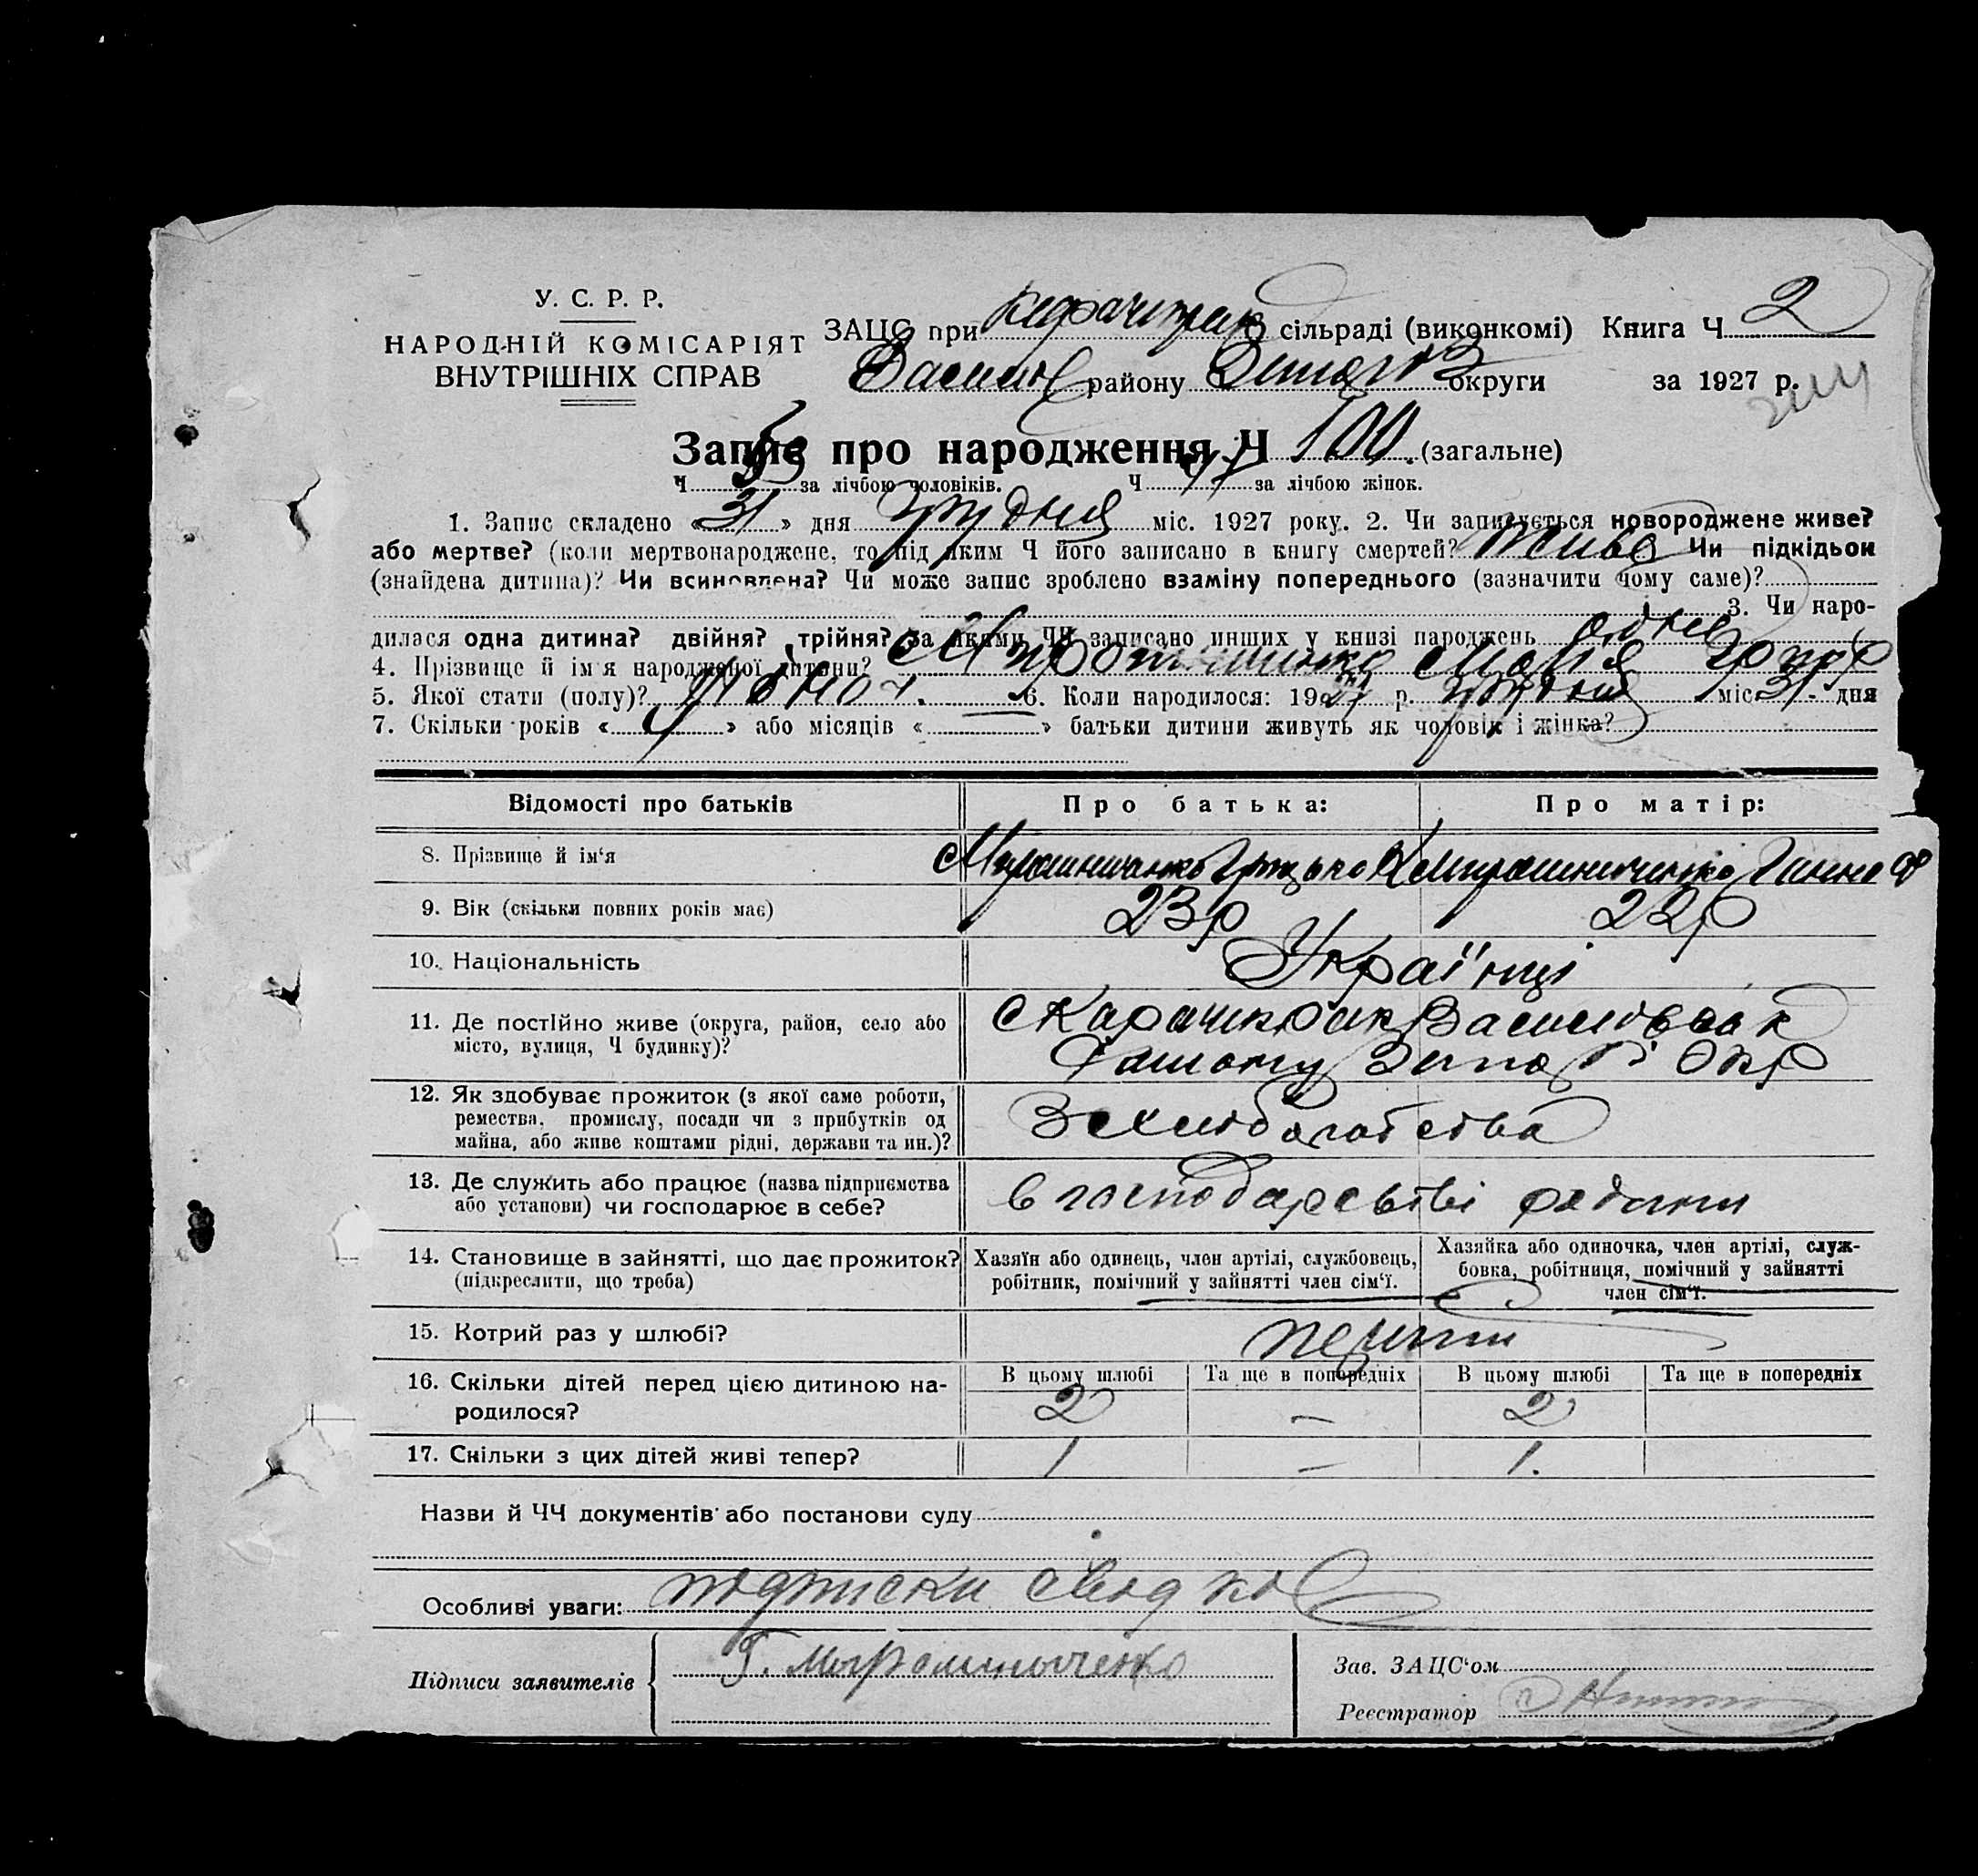 У. С. Р. Р.
НАРОДНІЙ КОМІСАРІЯТ
ВНУТРІШНІХ СПРАВ
ЗАЦС при сільраді (виконкомі) Книга Ч 2
району округи за 1927 р.
Запис про народження Ч 100. (загальне)
Ч 53 за лічбою чоловіків. Ч 47 за лічбою жінок.
1. Запис складено «31» дня Грудня міс. 1927 року. 2. Чи записується новороджене живе?
або мертве? (коли мертвонароджене, то під яким Ч його записано в книгу смертей? живе Чи підкідьок
(знайдена дитина)? Чи всиновлена? Чи може запис зроблено взаміну попереднього (зазначити чому саме)?
3. Чи наро-
дилася одна дитина? двійня? трійня? За якими ЧЧ записано инших у книзі народжень одна
4. Прізвище й ім'я народженої дитини? Мірошниченко Марія
5. Якої стати (полу)? жіноч. 6. Коли народилося: 1927 р. грудня міс. 31 дня
7. Скільки років « » або місяців « — » батьки дитини живуть як чоловік і жінка?
Відомості про батьків Про батька: Про матір:
8. Прізвище й ім‘я Мірошниченко Грицько Мирошниченко Ганна
9. Вік (скільки повних років має) 23 р 22 р
10. Національність Українці
11. Де постійно живе (округа, район, село або
місто, вулиця, Ч будинку)?
12. Як здобуває прожиток (з якої саме роботи,
ремества, промислу, посади чи з прибутків од
майна, або живе коштами рідні, держави та ин.)?
З хліборобства
13. Де служить або працює (назва підприємства
або установи) чи господарює в себе?
в господарстві родини
14. Становище в зайнятті, що дає прожиток?
(підкреслити, що треба)
Хазяїн або одинець, член артілі, службовець,
робітник, помічний у зайнятті член сім‘ї.
Хазяйка або одиночка, член артілі, служ-
бовка, робітниця, помічний у зайнятті
член сім‘ї.
15. Котрий раз у шлюбі?
16. Скільки дітей перед цією дитиною на-
родилося?
В цьому шлюбі Та ще в попередніх В цьому шлюбі Та ще в попередніх
2 — 2
17. Скільки з цих дітей живі тепер? 1 — 1.
Назви й ЧЧ документів або постанови суду
Особливі уваги: підписки свідків
Підписи заявителів Г. Мырошныченко
Зав. ЗАЦС‘ом
Реєстратор